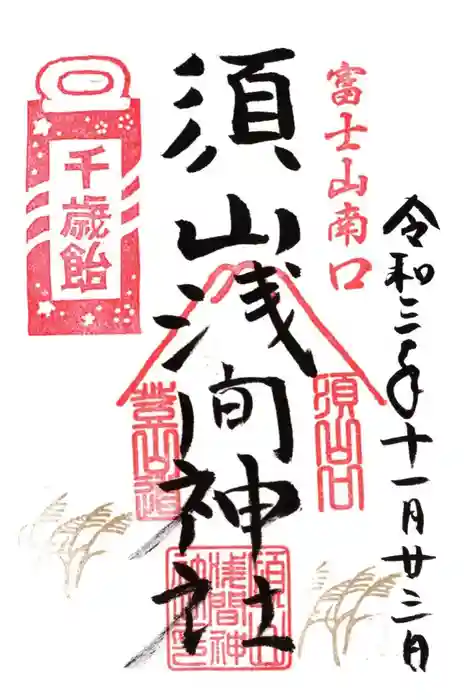 令和三年十一月廿三日
富士山南口
須山口
須山浅間神社
登山道
千歳飴